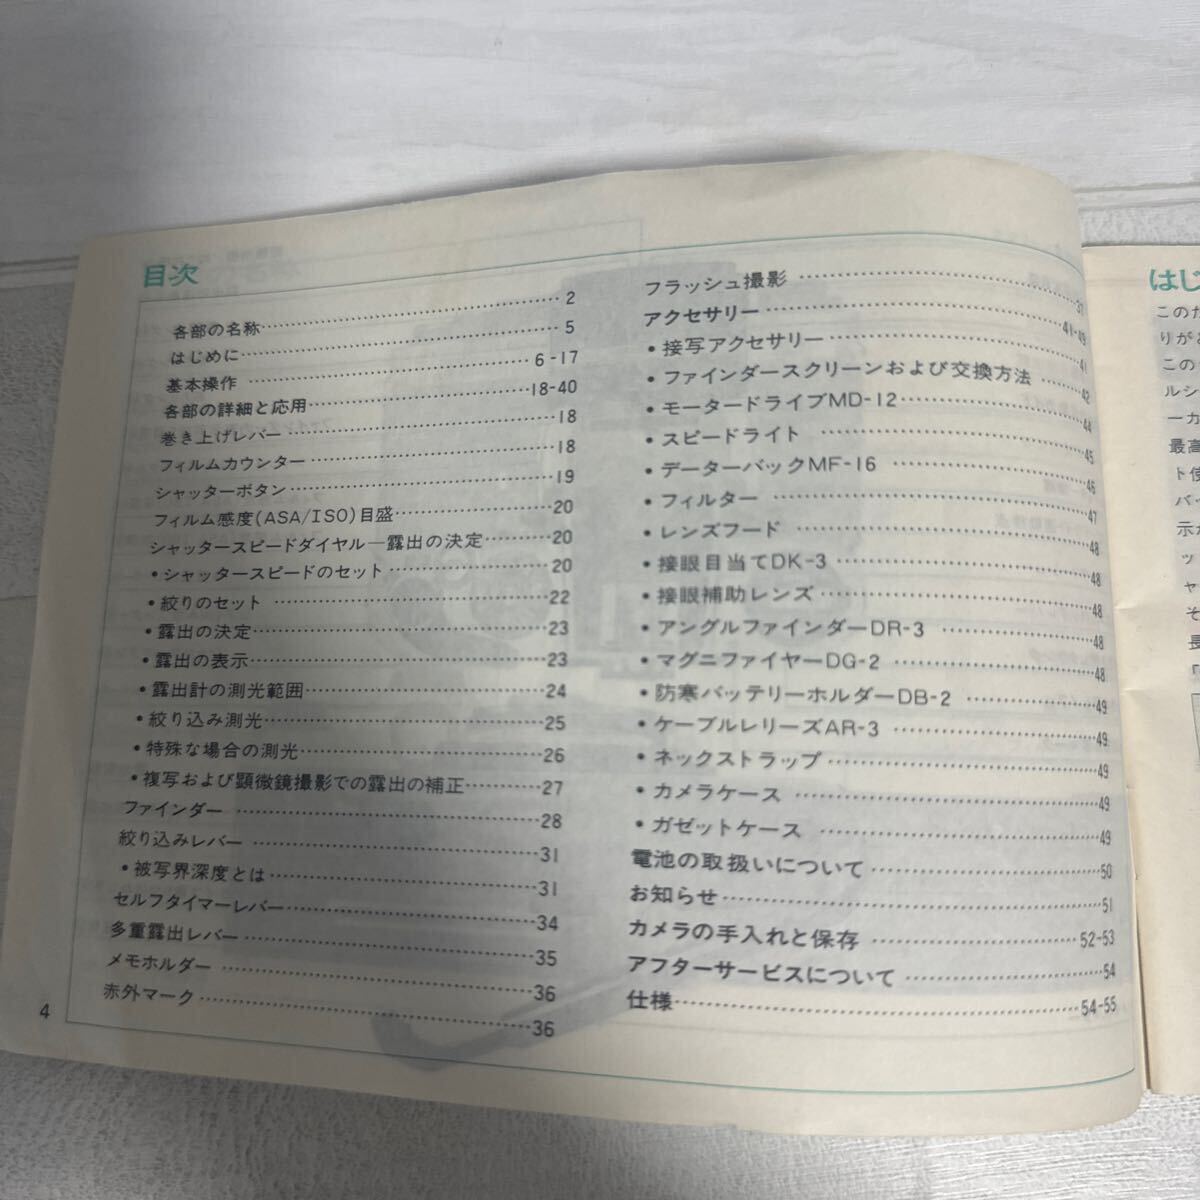 目次
各部の名称 2
はじめに 5
基本操作 6-17
各部の詳細と応用 18-40
巻き上げレバー 18
フィルムカウンター 18
シャッターボタン 19
フィルム感度(ASA/ISO)目盛 20
シャッタースピードダイヤル—露出の決定 20
•シャッタースピードのセット 20
•絞りのセット 22
•露出の決定 23
•露出の表示 23
•露出計の測光範囲 24
•絞り込み測光 25
•特殊な場合の測光 26
•複写および顕微鏡撮影での露出の補正 27
ファインダー 28
絞り込みレバー 31
•被写界深度とは 31
セルフタイマーレバー 34
多重露出レバー 35
メモホルダー 36
赤外マーク 36
4
フラッシュ撮影 37
アクセサリー 41-49
•接写アクセサリー 41
•ファインダースクリーンおよび交換方法 42
•モータードライブMD-12 44
•スピードライト 45
•データーバックMF-16 46
•フィルター 47
•レンズフード 48
•接眼目当てDK-3 48
•接眼補助レンズ 48
•アングルファインダーDR-3 48
•マグニファイヤーDG-2 48
•防寒バッテリーホルダーDB-2 49
•ケーブルレリーズAR-3 49
•ネックストラップ 49
•カメラケース 49
•ガゼットケース 49
電池の取扱いについて 50
お知らせ 51
カメラの手入れと保存 52-53
アフターサービスについて 54
仕様 54-55
はじ
このた
りがと
この
ルシ
ーカ
最高
ト使
バッ
示か
ッ
ャ
そ
長
「